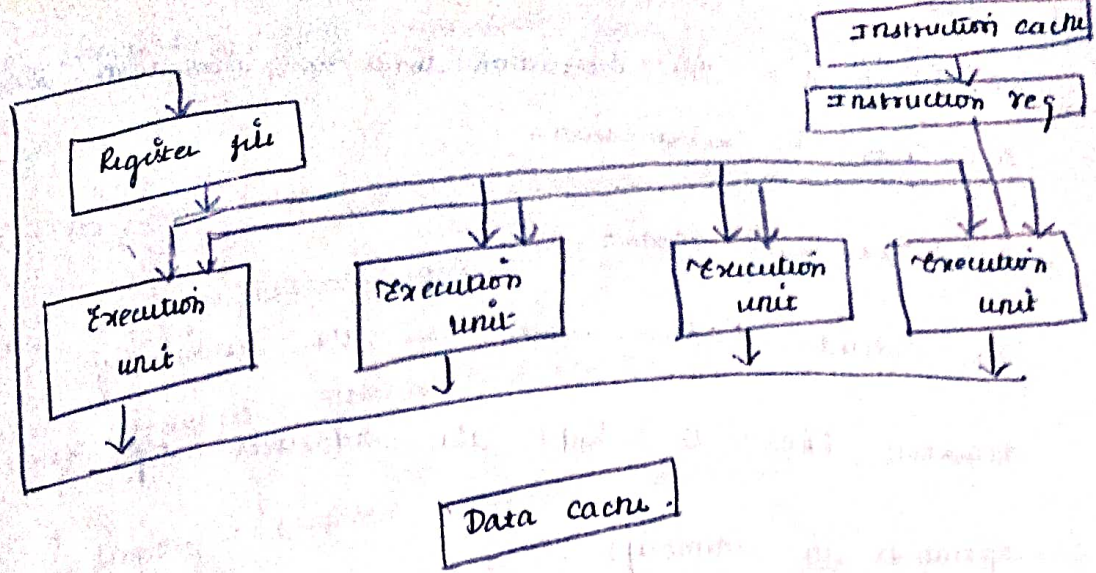 Instruction cache
Instruction reg
Register file
Execution
unit
Execution
unit
Execution
unit
Execution
unit
Data cache.